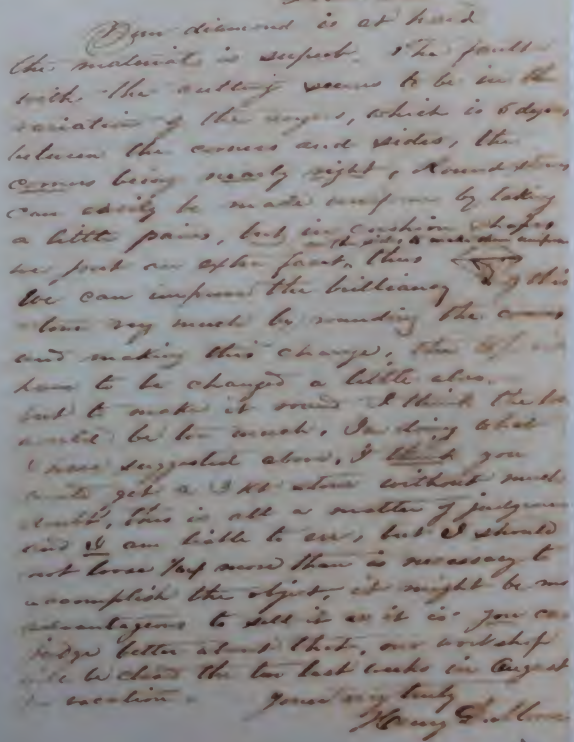 Your diamond is at hand
the material is superb. The fault
with the cutting seems to be in the
variation of the angles, which is 6 degs
between the corners and sides, the
corners being nearly right, Round stones
can easily be made uniform by taking
a little pains, but in cushion shapes
in the sides to make them uniform
we put an extra facet, thus
We can improve the brilliancy of this
stone very much by rounding the corners
and making this change, the
have to be changed a little also.
but to make it round I think the loss
would be too much, In doing what
I have suggested above, I think you
could get a 3 Kt stone without much
doubt, this is all a matter of judgment
and I am liable to err, but I should
not loose 1/64 more than is necessary to
accomplish the object, it might be more
advantageous to sell it as it is you can
judge better about that, our workshop
will be closed the two last weeks in August
for vacation. Yours very truly
Henry D. Morse